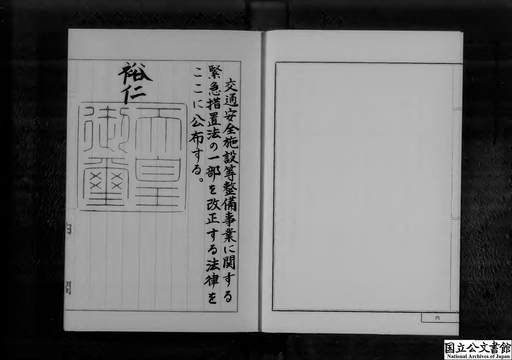 交通安全施設等整備事業に関する
緊急措置法の一部を改正する法律を
ここに公布する。
裕仁
天皇
御璽
内
閣
六
国立公文書館
National Archives of Japan